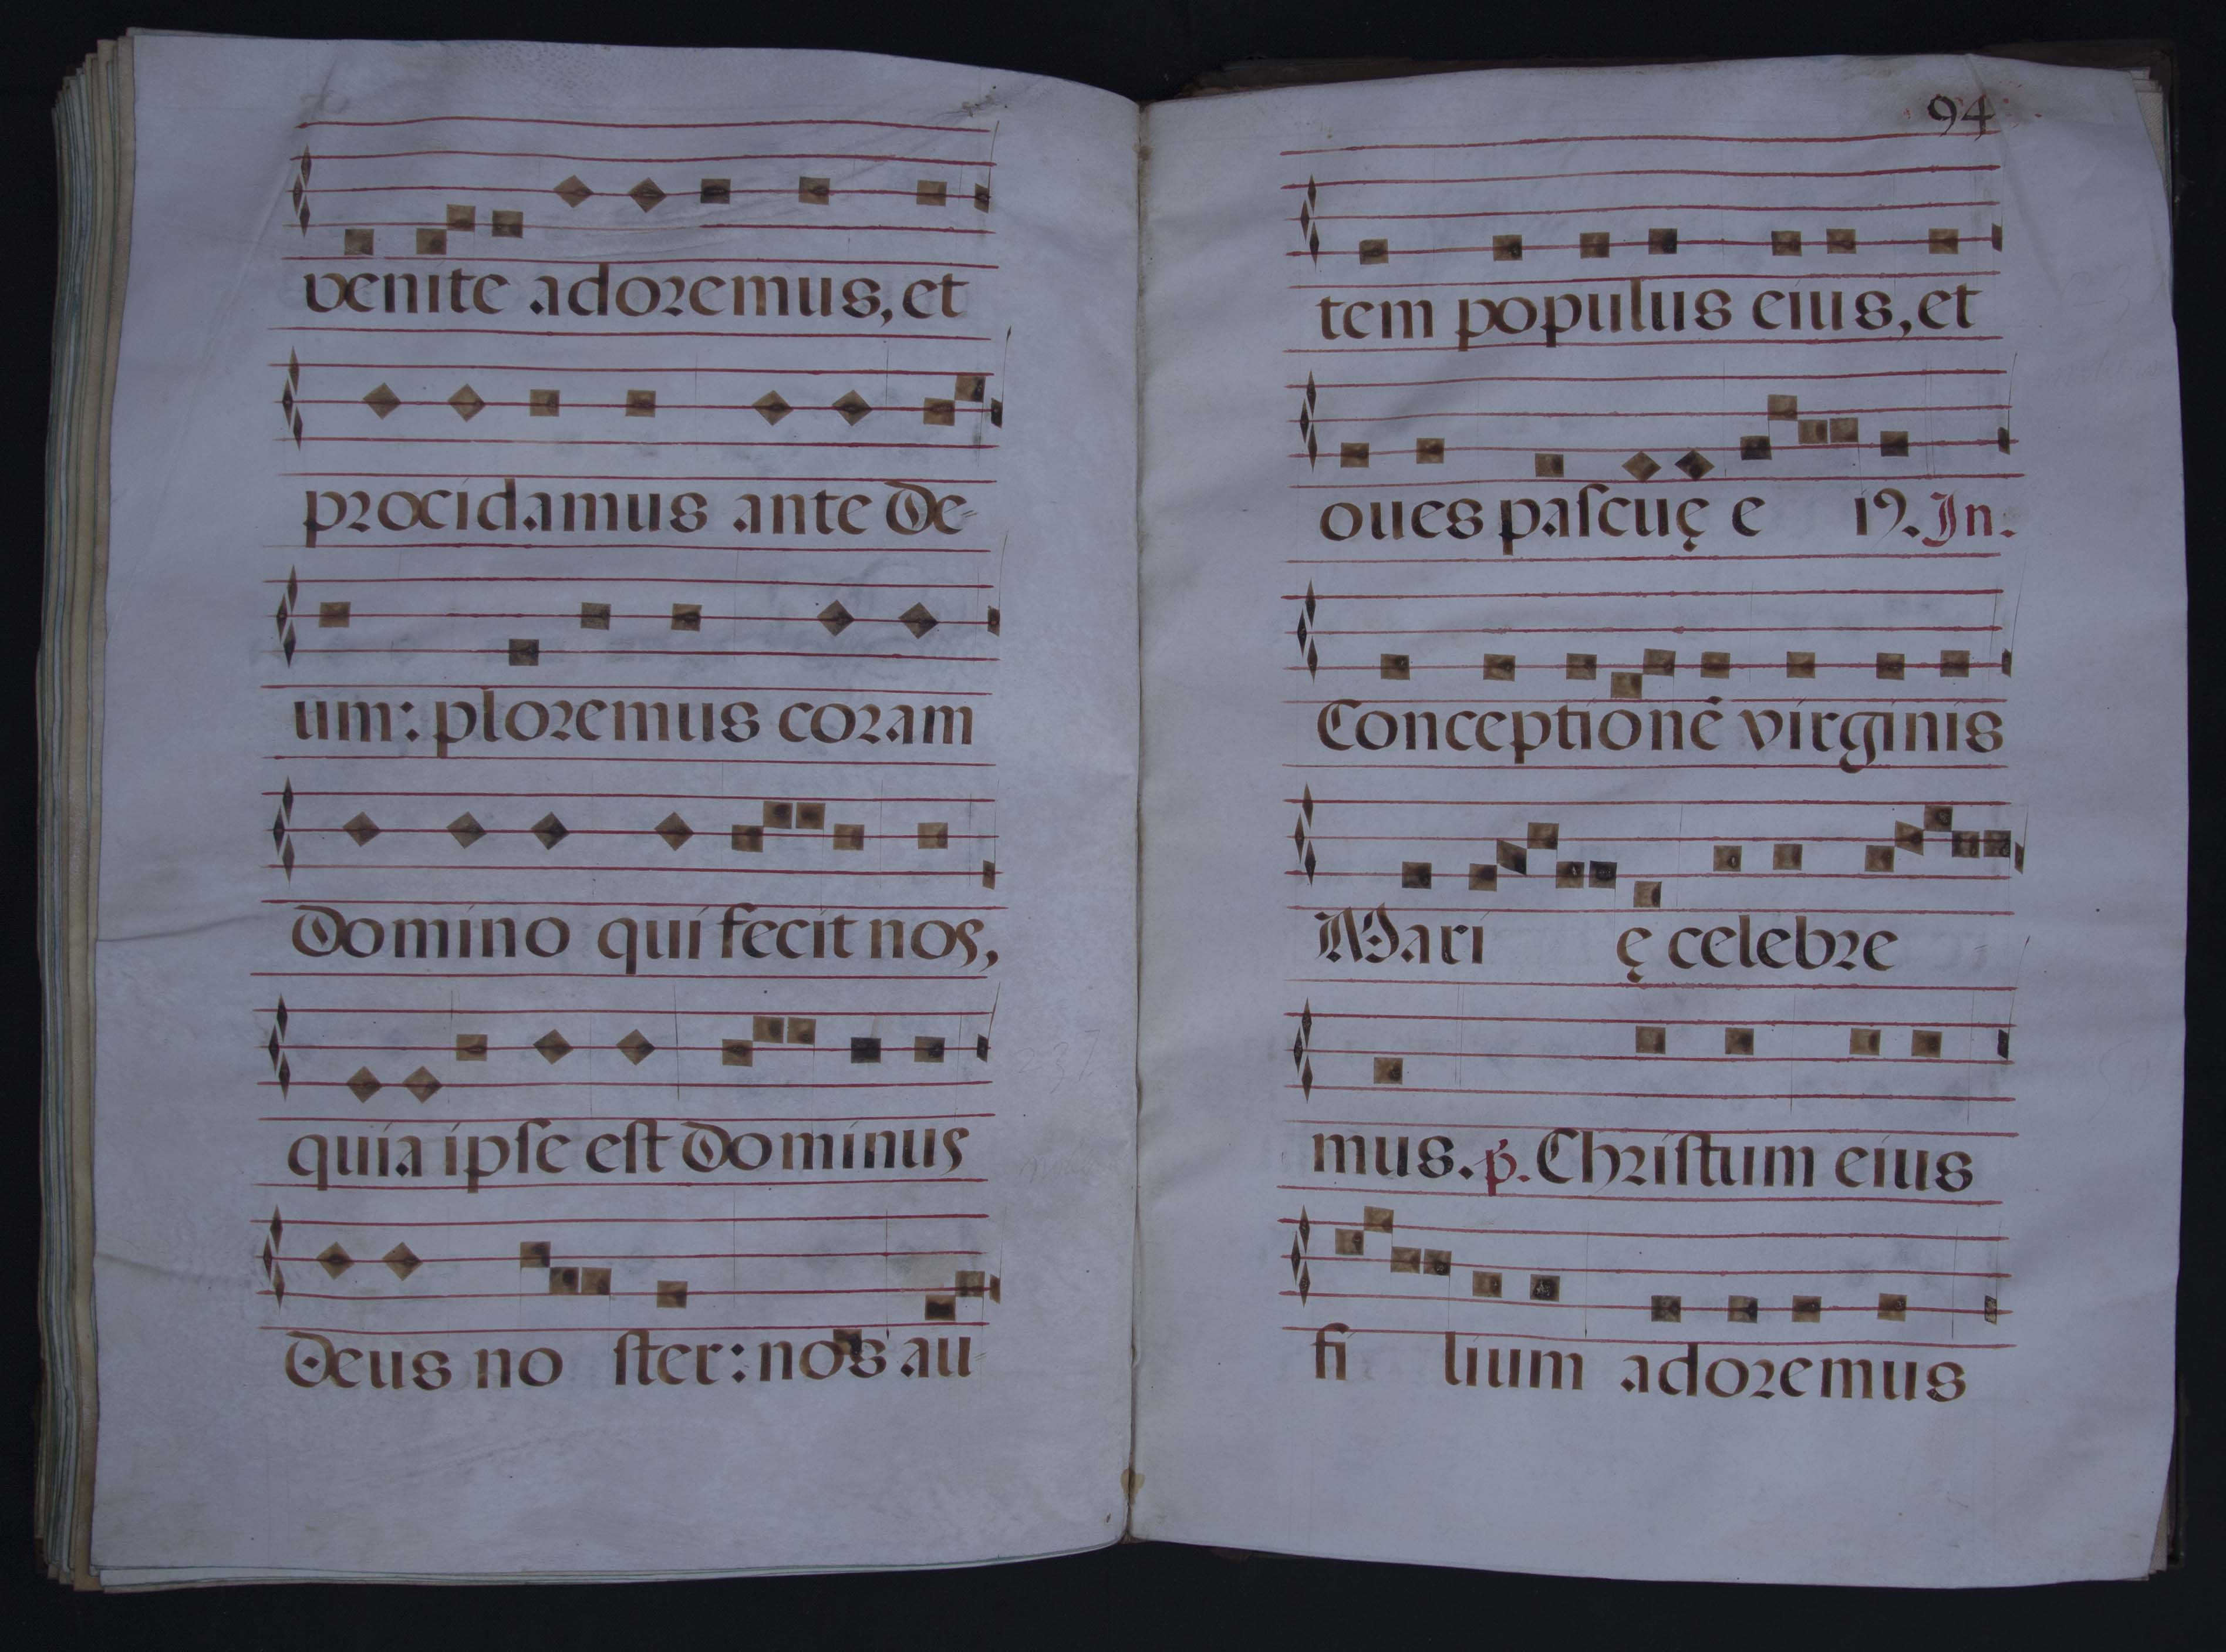 venite adoremus, et
procidamus ante De-
um: ploremus coram
Domino qui fecit nos,
quia ipse est Dominus
Deus no ster: nos au-
94
tem populus eius, et
oues pascuę e i9. In.
Conceptionē virginis
Mari ę celebre
mus. p̄. Christum eius
fi lium adoremus